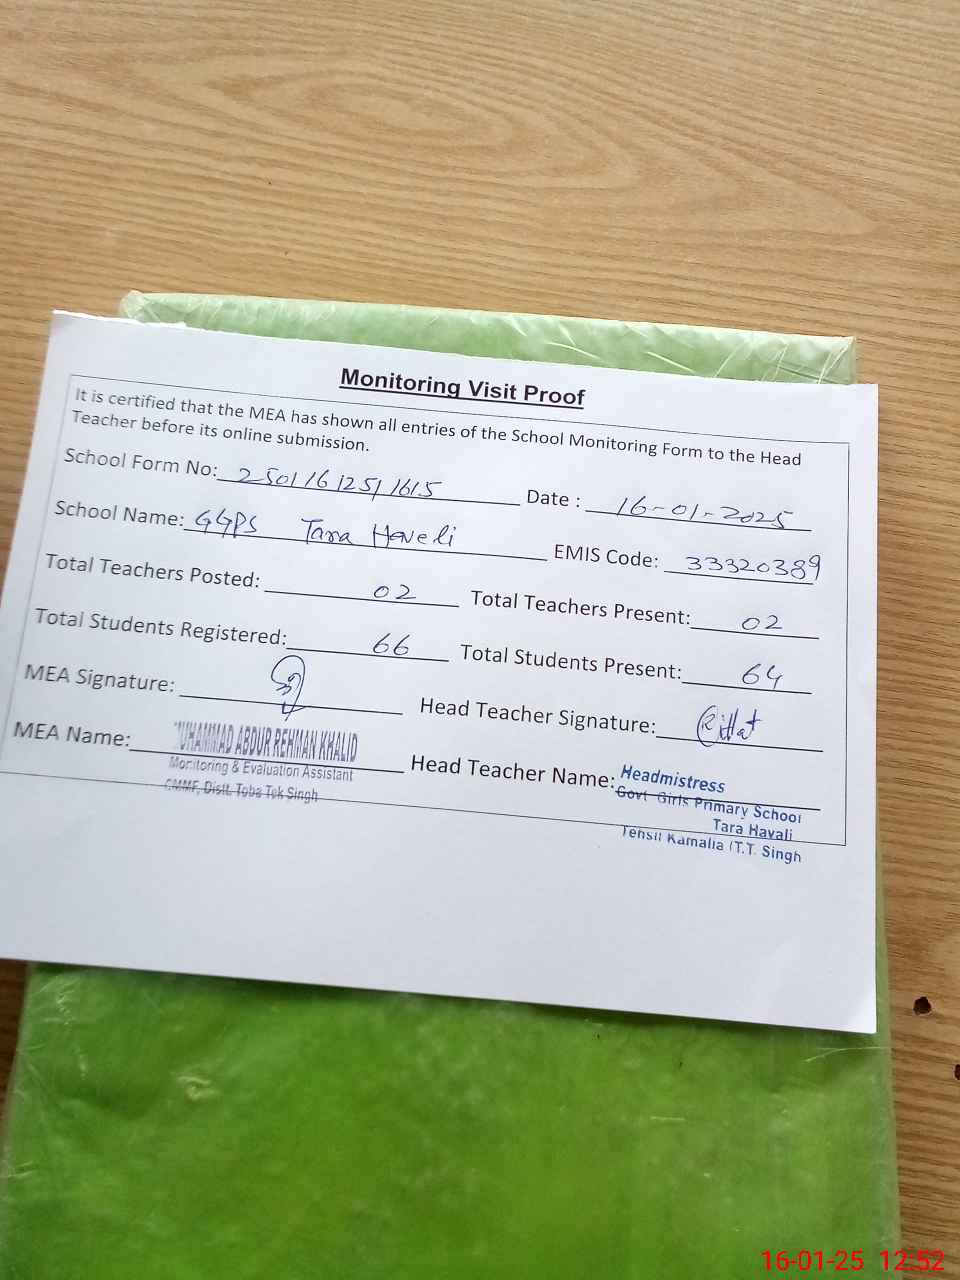 Monitoring Visit Proof
It is certified that the MEA has shown all entries of the School Monitoring Form to the Head
Teacher before its online submission.
School Form No: 25011612511615 Date : 16-01-2025
School Name: GGPS Tara Haveli EMIS Code: 33320389
Total Teachers Posted: 02 Total Teachers Present: 02
Total Students Registered: 66 Total Students Present: 64
MEA Signature: Head Teacher Signature:
MEA Name: MUHAMMAD ABDUR REHMAN KHALID
Monitoring & Evaluation Assistant
CMMF, Distt. Toba Tek Singh
Head Teacher Name: Headmistress
Govt Girls Primary School
Tara Havali
Tehsil Kamalia (T.T. Singh
16-01-25 12:52